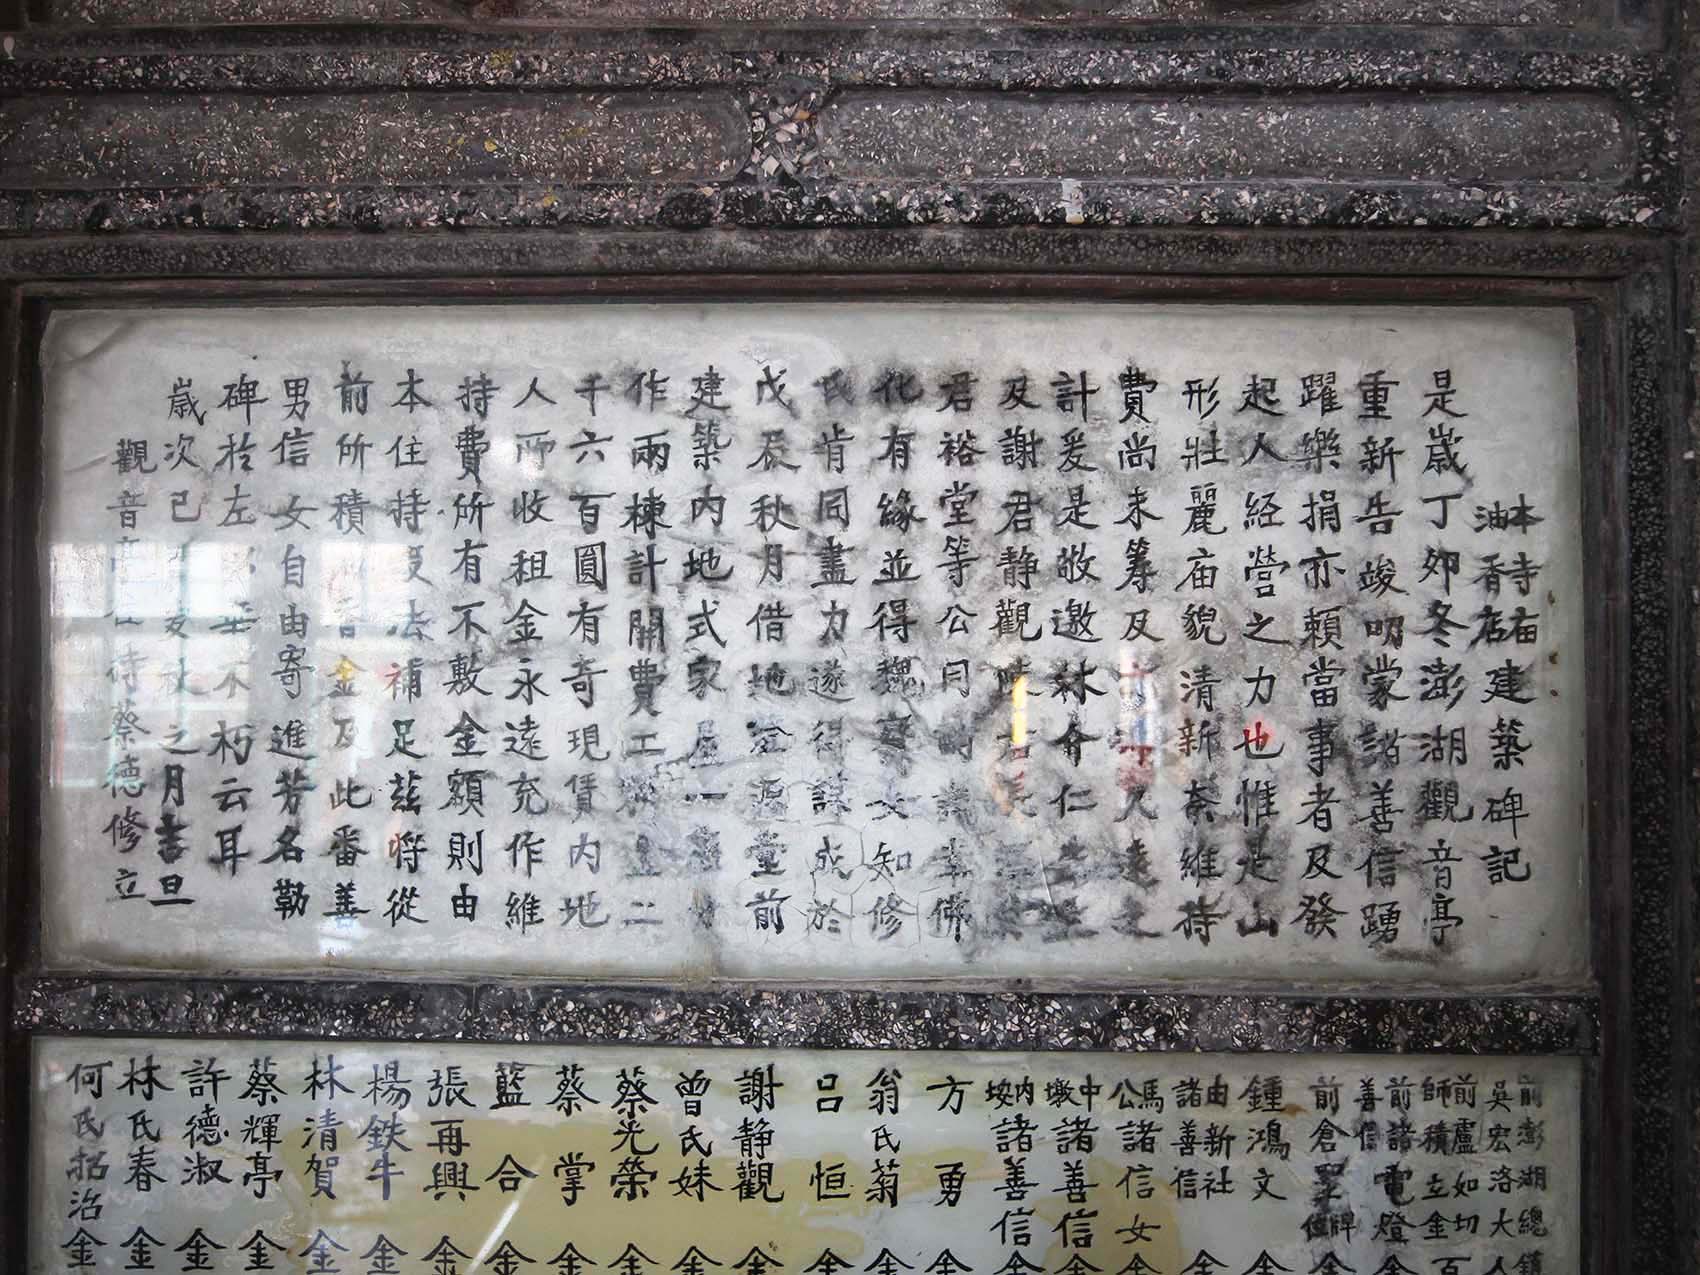 本寺庙
油香店建築碑記
是歲丁夘冬澎湖觀音亭
重新告竣叨蒙諸善信踴
躍樂捐亦賴當事者及發
起人经營之力也惟是山
形壯麗庙貌清新斎維持
費尚未筹及
計爰是敬邀林介仁
及謝君静觀陳君長
君裕堂等公同
化有緣並得魏蔡女知修
氏肯同盡力遂得謀成於
戊辰秋月借地澄源堂前
建築内地式家屋一座
作兩棟計開費工 金二
千六百圓有奇現賃内地
人所收租金永遠充作維
持費所有不敷金額則由
本住持設法補足茲將從
前所積 金及此番善
男信女自由寄進芳名勒
碑於左 垂不朽云耳
歲次己 秋之月吉旦
觀音亭住持蔡德修立
前澎湖總鎮
吳宏洛大人
前盧如切
師積立金百
前諸電燈
善信
前倉聖牌位
鍾鴻文金
由新社
諸善信
馬
公諸信女金
中
墩諸善信金
内
垵諸善信金
方勇金
翁氏菊金
呂恒金
謝静觀金
曾氏妹金
蔡光榮金
蔡掌金
藍合金
張再興金
楊鉄牛金
林清賀金
蔡輝亭金
許德淑金
林氏春金
何氏招治金